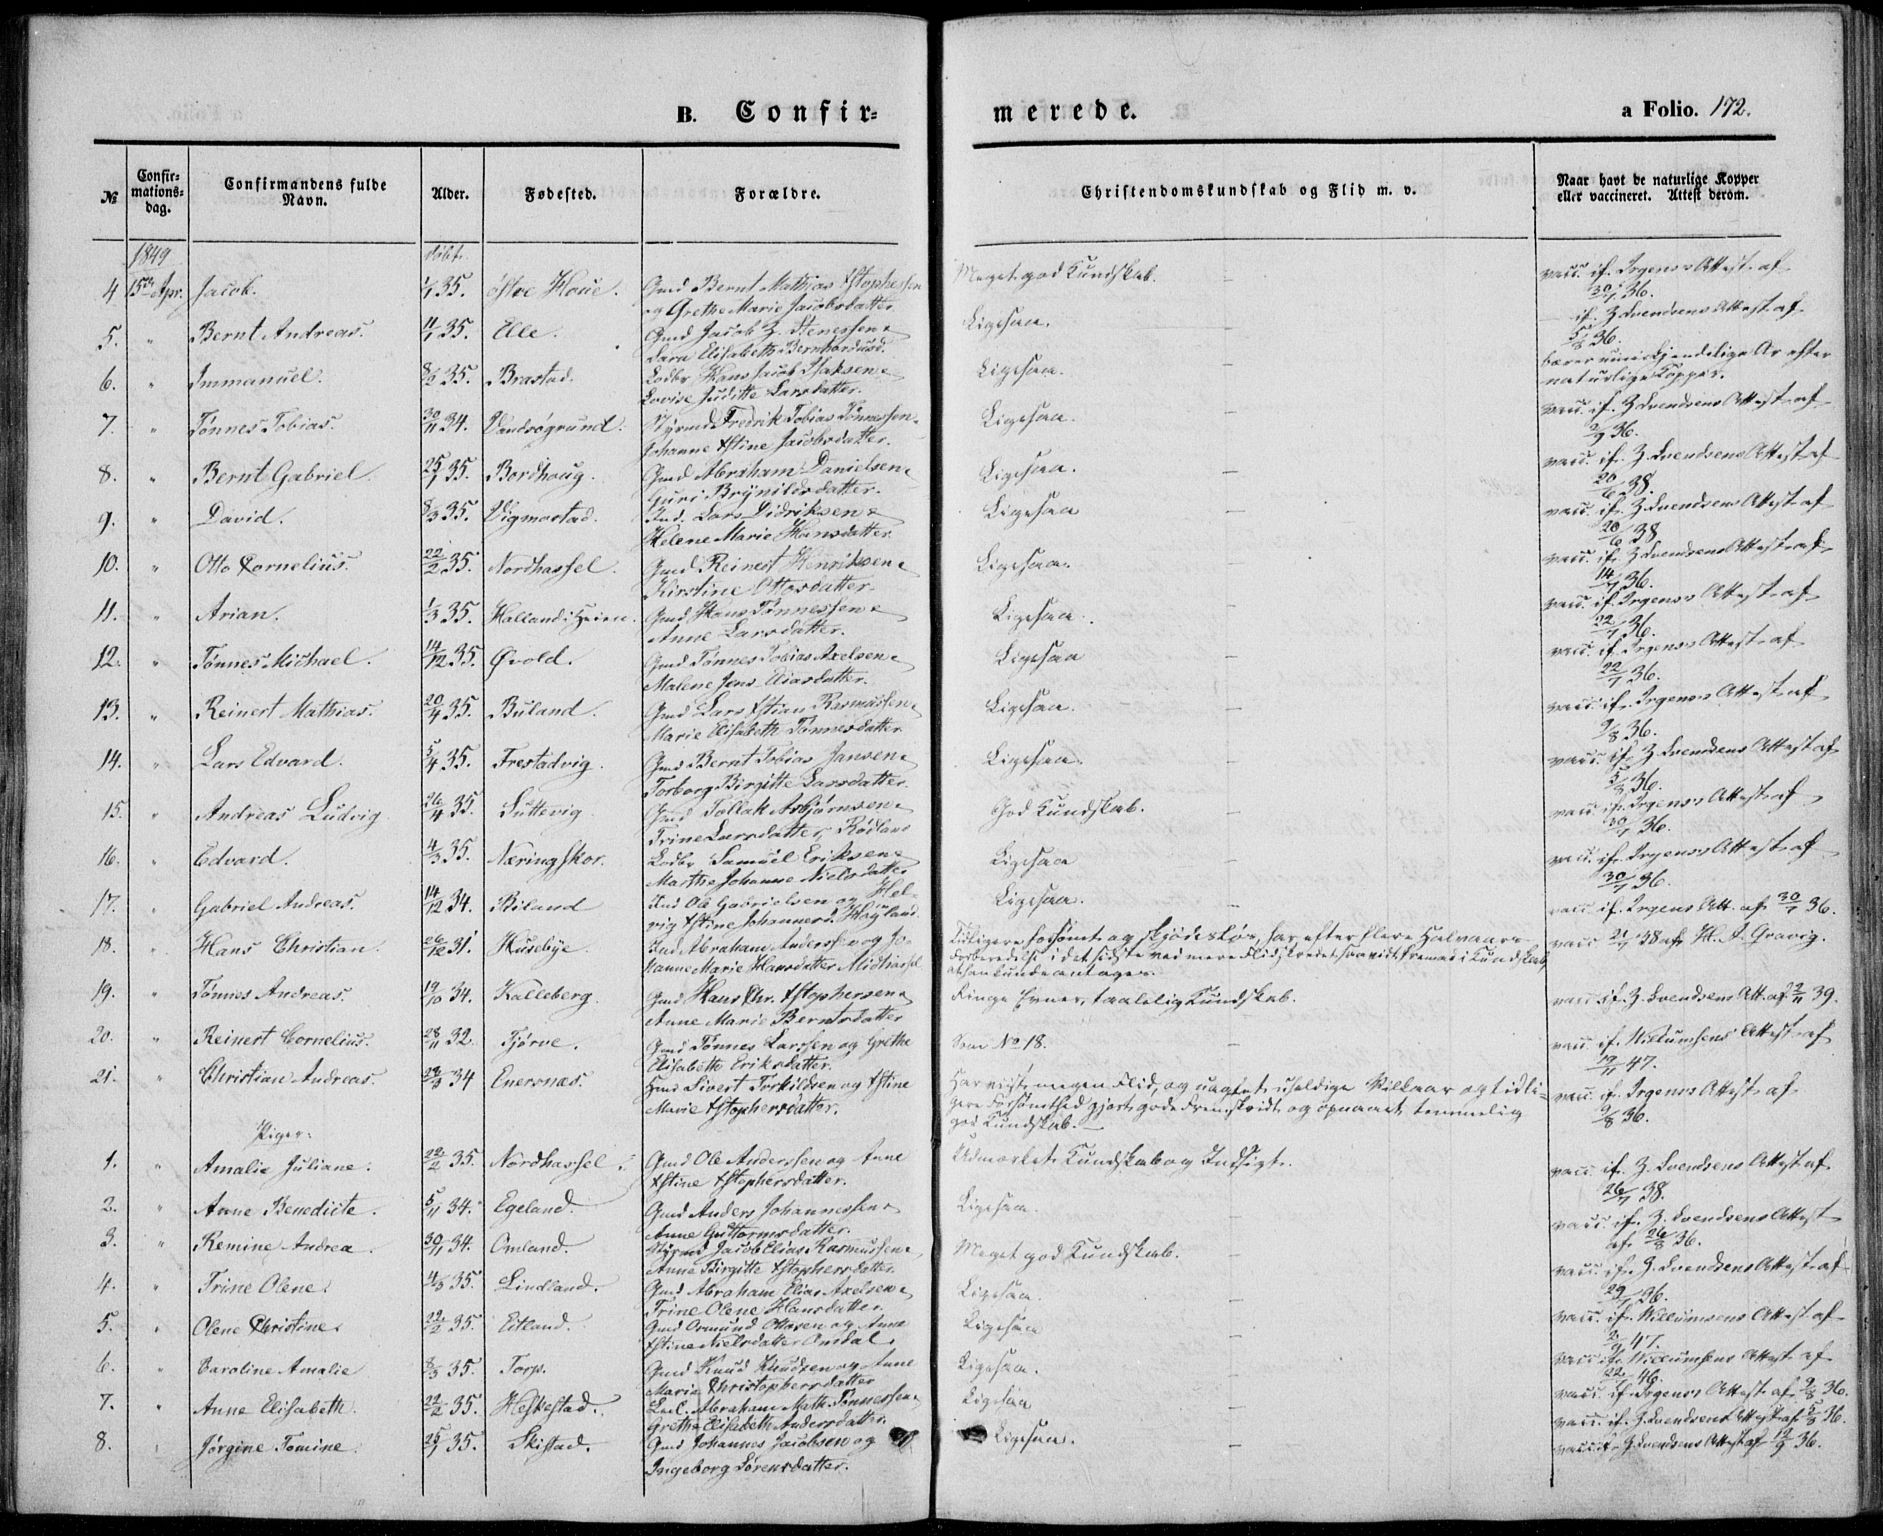 B. Confir=
merede.
a Folio. 172.
№ Confir=mations=dag. Confirmandens fulde Navn. Alder. Fødested. Forældre. Christendomskundskab og Flid m. v. Naar havt de naturlige Kopper eller vaccineret. Attest derom.
1849 døbt
4 15de Apr. Jacob. 1/1 35. Østre Houe. Gmd Bernt Mathias Xstophessen Meget god Kundskab. vacc. if. Irgens's Attest af
og Grethe Marie Jacobsdatter 30/7 36.
5. " Bernt Andreas. 11/1 35. Elle. Gmd Jacob Z. Stenessen & Ligesaa. if. Z. Svendsens Attest af
Sara Elisabeth Bernhardusd. 5/8 36.
6. " Immanuel. 8/3 35. Brastad. Lodbr Hans Jacob Isaksen & Ligesaa. bærer umiskjendelige Ar efter
Lovise Juditte Larsdatter. naturlige Kopper.
7. " Tønnes Tobias. 30/11 34. Vandsøgrund. Styrmd Fredrik Tobias Tønnessen & Ligesaa. vacc. if. Z. Svendsens Attest af
Johanne Xstine Jacobsdatter. 2/9 36.
8. " Bernt Gabriel. 25/1 35. Bordhoug. Gmd Abraham Danielsen & Ligesaa. vacc. if. Z. Svendsens Attest af
Guri Brynildsdatter. 20/6 38.
9. " David. 8/3 35. Vigmostad. Ind. Lars Didriksen & Ligesaa vacc. if. Z. Svendsens Attest af
Helene Marie Hansdatter. 20/6 38
10. " Otto Cornelius. 22/2 35. Nordhassel. Gmd Reinert Henriksen & Ligesaa. vacc. if. Z. Svendsens Attest af
Kirstine Ottosdatter. 14/7 36.
11. " Arian. 1/3 35. Halland i Heien. Gmd Hans Tønnessen & Ligesaa. vacc. if. Irgens's Attest af
Anne Larsdatter. 22/7 36.
12. " Tønnes Michael. 14/12 35. Øvold. Gmd Tønnes Tobias Axelsen & Ligesaa vacc. if. Irgens's Attest af
Malene Jens Eliasdatter. 22/7 36.
13. " Reinert Mathias. 20/4 35. Buland. Gmd Lars Xstian Rasmussen & Ligesaa. vacc. if. Irgens's Attest af
Marie Elisabeth Tønnesdatter 9/8 36.
14. " Lars Edvard. 5/4 35. Frestadvig. Gmd Bernt Tobias Jansen & Ligesaa. vacc. if. Z. Svendsens Attest af
Torborg Birgitte Larsdatter 5/8 36.
15. " Andreas Ludvig 26/4 35. Luttevig Gmd Tollak Asbjørnsen & God Kundskab. vacc. if. Irgens's Attest af
Trine Larsdatter Rødland 30/7 36.
16. " Edvard. 4/3 35. Næringskor. Lodbr Samuel Eriksen & Ligesaa vacc. if. Irgens's Attest af
Marthe Johanne Nielsdatter 30/7 36.
17. " Gabriel Andreas. 14/12 34. Biland Ind Ole Gabrielsen og Hel- Ligesaa. vacc. if. Irgens Att. af 30/7 36.
vig Xstine Johannesd. Høyland.
18. " Hans Christian. 26/12 31. Huseby. Ind. Abraham Anderssen og Jo- Tidligere forsømt og skjødesløs, har efter flere Halvaars vacc 21/7 38 af H. A. Gravig.
hanne Marie Hansdatter Midhassel Forberedelse i det sidste ved mere Flid skredet saavidt fremad i Kundskab,
at han kunde antages.
19. " Tønnes Andreas. 19/10 34. Kalleberg. Gmd Hans Chr. Xstophersen & Ringe Evner, taalelig Kundskab. vacc. if. Z. Svendsens Att. af 2/11 39.
Anne Marie Berntsdatter
20. " Reinert Cornelius. 28/11 32. Tjørve. Gmd Tønnes Larssen og Grethe Som No 18. vacc. if. Willumsens Attest af
Elisabeth Eriksdatter. 19/11 47.
21. " Christian Andreas. 34 Enersnæs. Hmd Sivert Torkildsen og Xstine Har viist megen Flid, og uagtet uheldige Vilkaar og tidli- vacc. if. Irgens's Attest af
Marie Xstophersdatter. gere Forsømthed gjort gode Fremskridt og opnaaet temmelig 9/8 36.
god Kundskab.
Piger:
1. " Amalie Juliane. 22/2 35. Nordhassel. Gmd Ole Anderssen og Anne Udmærket Kundskab og Indsigt. vacc. if. Z. Svendsens Attest af
Xstine Xstophersdatter. 26/7 38.
2. " Anne Benedicte. 5/11 34. Egeland. Gmd Anders Johannessen & Ligesaa. vacc. if. Z. Svendsens Attest
Anne Guttormsdatter. af 26/8 36.
3. " Remine Andrea. 30/11 34. Omland. Styrmd Jacob Elias Rasmussen & Meget god Kundskab. vacc. if. Z. Svendsens Attest af
Anne Birgitte Xstophersdatter. 29/7 36.
4. " Trine Olene. 4/3 35. Lindland. Gmd Abraham Elias Axelsen & Ligesaa.
Trine Olene Hansdatter. vacc. if. Willumsens Attest af
5. " Olene Christine. 22/2 35. Eitland. Gmd Ormund Ottosen og Anne Ligesaa 47.
Xstine Nielsdatter Omdal. vacc. if. Willumsens Attest af
6. " Caroline Amalie 8/3 35. Torp. Gmd Knud Knudsen og Anne Ligesaa. 46.
Marie Christophersdatter vacc. if. Irgens's Attest af 9/8 36.
7. " Anne Elisabeth. 22/2 35. Heskestad. Abraham Math. Tønnessen & Ligesaa
Grethe Elisabeth Andersdatter. vacc. if. Z. Svendsens Attest af 5/8 36.
8. " Jørgine Tomine. 25/1 35. Skistad. Gmd Johannes Jacobsen og Ligesaa. vacc. if. Z. Svendsens Attest af 12/9 36.
Ingeborg Sørensdatter.